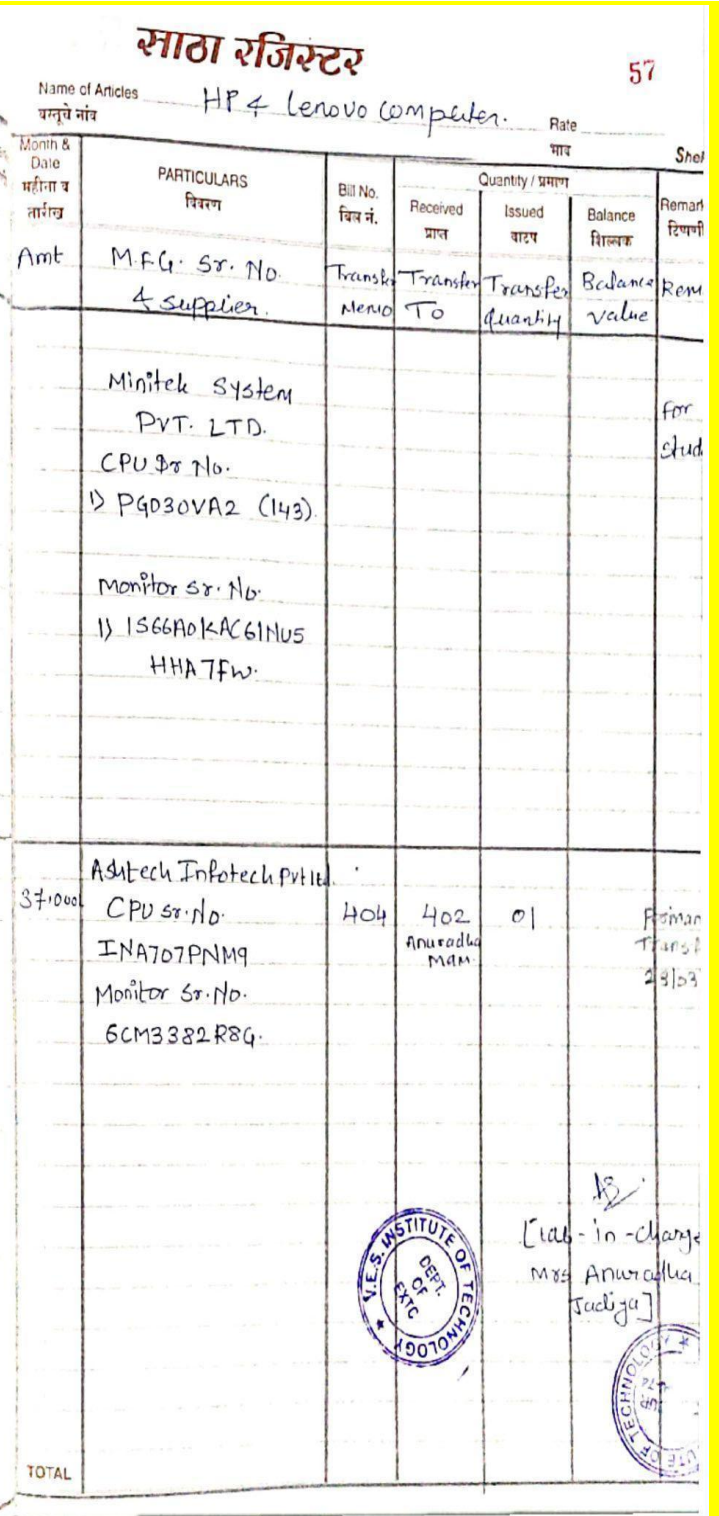 साठा रजिस्टर
57
Name of Articles HP & Lenovo Computer.
वस्तूचे नांव
Rate
भाव
Month &
Date
महीना व
तारीख
PARTICULARS
विवरण
Bill No.
बिल नं.
Quantity / प्रमाण
Received
प्राप्त
Issued
वाटप
Balance
शिल्लक
Remark
टिप्पणी
Amt
M.F.G. Sr. No.
& supplier.
Transfer
Memo
Transfer
To
Transfer
Quantity
Balance
value
Rem
Minitek System
PVT. LTD.
CPU Sr No.
1) PG030VA2 (143)
Monitor Sr. No.
1) 1S66A0KAC61NU5
HHA7FW.
for
stud
Ashtech Infotech Pvt ltd.
37,000
CPU Sr. No.
INA707PNM9
Monitor Sr. No.
6CM3382R8G.
404
402
Anuradha
Mam.
01
Transf
23/03
[Lab-in-charge
Mrs Anuradha
Jadiya]
V.E.S. INSTITUTE OF TECHNOLOGY
DEPT.
OF
EXTC
UTE OF TECHNOLOGY
TOTAL